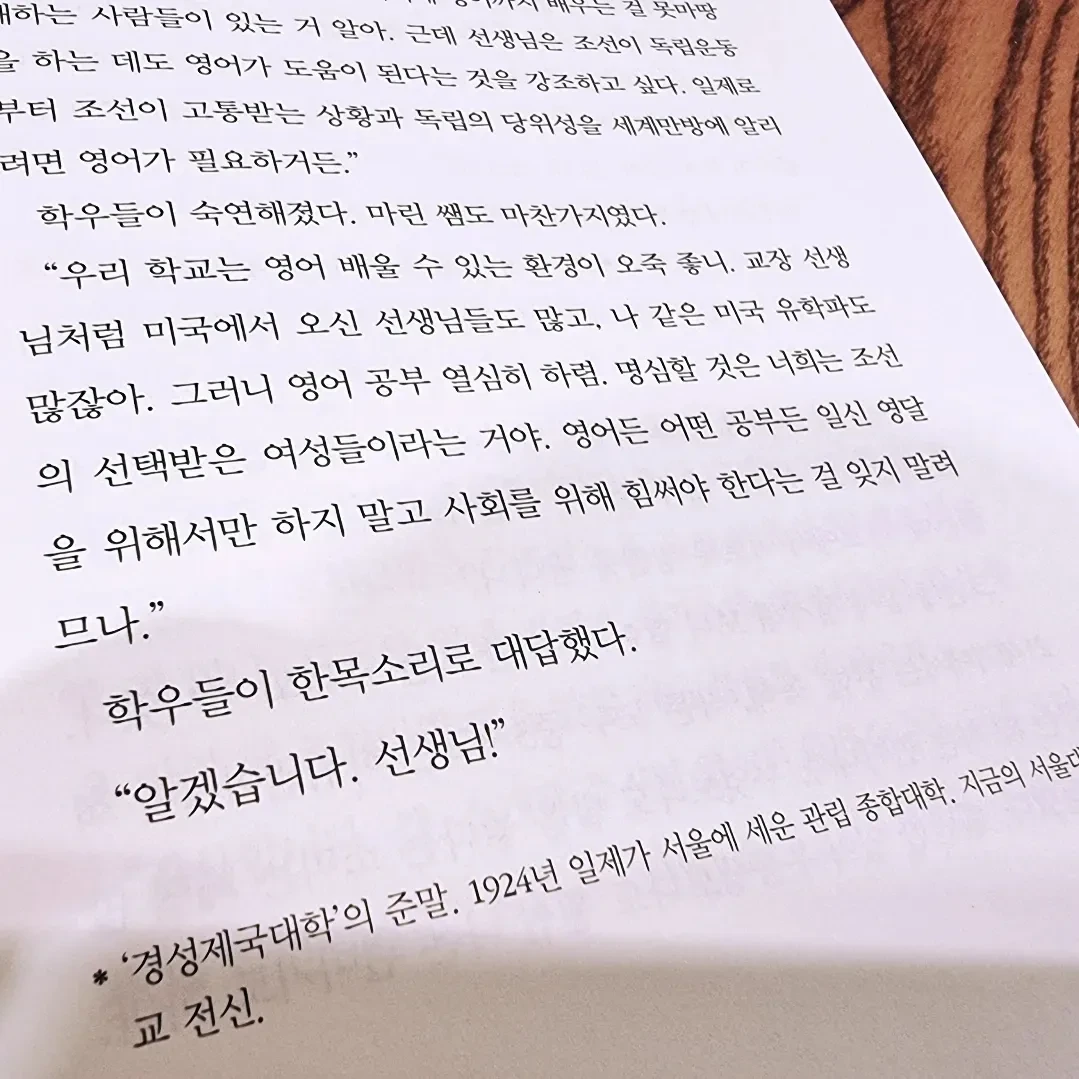 영어까지 배우는 걸 못마땅
하는 사람들이 있는 거 알아. 근데 선생님은 조선이 독립운동
을 하는 데도 영어가 도움이 된다는 것을 강조하고 싶다. 일제로
부터 조선이 고통받는 상황과 독립의 당위성을 세계만방에 알리
려면 영어가 필요하거든.”
학우들이 숙연해졌다. 마린 쌤도 마찬가지였다.
“우리 학교는 영어 배울 수 있는 환경이 오죽 좋니. 교장 선생
님처럼 미국에서 오신 선생님들도 많고, 나 같은 미국 유학파도
많잖아. 그러니 영어 공부 열심히 하렴. 명심할 것은 너희는 조선
의 선택받은 여성들이라는 거야. 영어든 어떤 공부든 일신 영달
을 위해서만 하지 말고 사회를 위해 힘써야 한다는 걸 잊지 말려
므나.”
학우들이 한목소리로 대답했다.
“알겠습니다. 선생님!”
* ‘경성제국대학’의 준말. 1924년 일제가 서울에 세운 관립 종합대학. 지금의 서울대
교 전신.